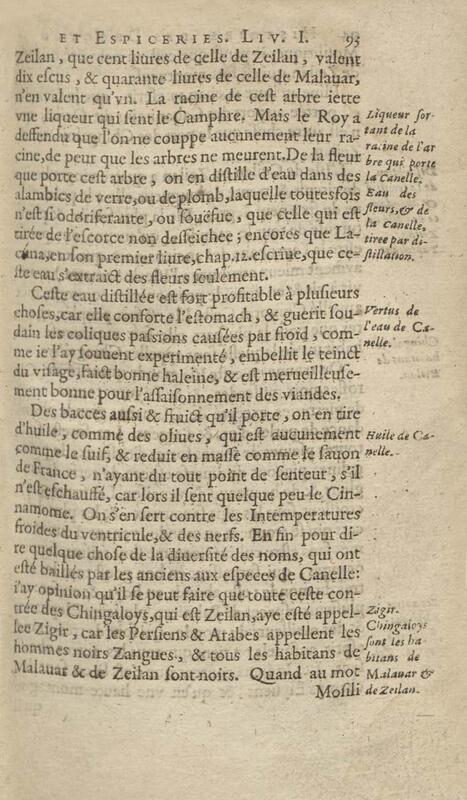 ET ESPICERIES. LIV. I. 93
Zeilan, que cent liures de celle de Zeilan, valent
dix escus, & quarante liures de celle de Malauar,
n'en valent qu'vn. La racine de cest arbre iette
vne liqueur qui sent le Camphre. Mais le Roy a
deffendu que l'on ne couppe aucunement leur ra-
cine, de peur que les arbres ne meurent. De la fleur
que porte cest arbre, on en distille d'eau dans des
alambics de verre, ou de plomb, laquelle toutesfois
n'est si odoriferante, ou souëfue, que celle qui est
tirée de l'escorce non desseichee; encores que La-
cuna, en son premier liure, chap. 12. escriue, que ce-
ste eau s'extraict des fleurs seulement.
Liqueur sor-
tant de la
racine de l'ar
bre qui porte
la Canelle.
Eau des
fleurs, & de
la canelle,
tiree par di-
stillation.
Ceste eau distillée est fort profitable à plusieurs
choses, car elle conforte l'estomach, & guerit sou-
dain les coliques passions causées par froid, com-
me ie l'ay souuent experimenté, embellit le teinct
du visage, faict bonne haleine, & est merueilleuse-
ment bonne pour l'assaisonnement des viandes.
Vertus de
l'eau de Ca-
nelle.
Des bacces aussi & fruict qu'il porte, on en tire
d'huile, comme des oliues, qui est aucunement
comme le suif, & reduit en masse comme le sauon
de France, n'ayant du tout point de senteur, s'il
n'est eschauffé, car lors il sent quelque peu le Cin-
namome. On s'en sert contre les Intemperatures
froides du ventricule, & des nerfs. En fin pour di-
re quelque chose de la diuersité des noms, qui ont
esté baillés par les anciens aux especes de Canelle:
i'ay opinion qu'il se peut faire que toute ceste con-
trée des Chingaloys, qui est Zeilan, aye esté appel-
lee Zigir, car les Persiens & Arabes appellent les
hommes noirs Zangues, & tous les habitans de
Malauar & de Zeilan sont noirs. Quand au mot
Huile de Ca-
nelle.
Zigir.
Chingaloys
sont les ha-
bitans de
Malauar &
de Zeilan.
Mosili